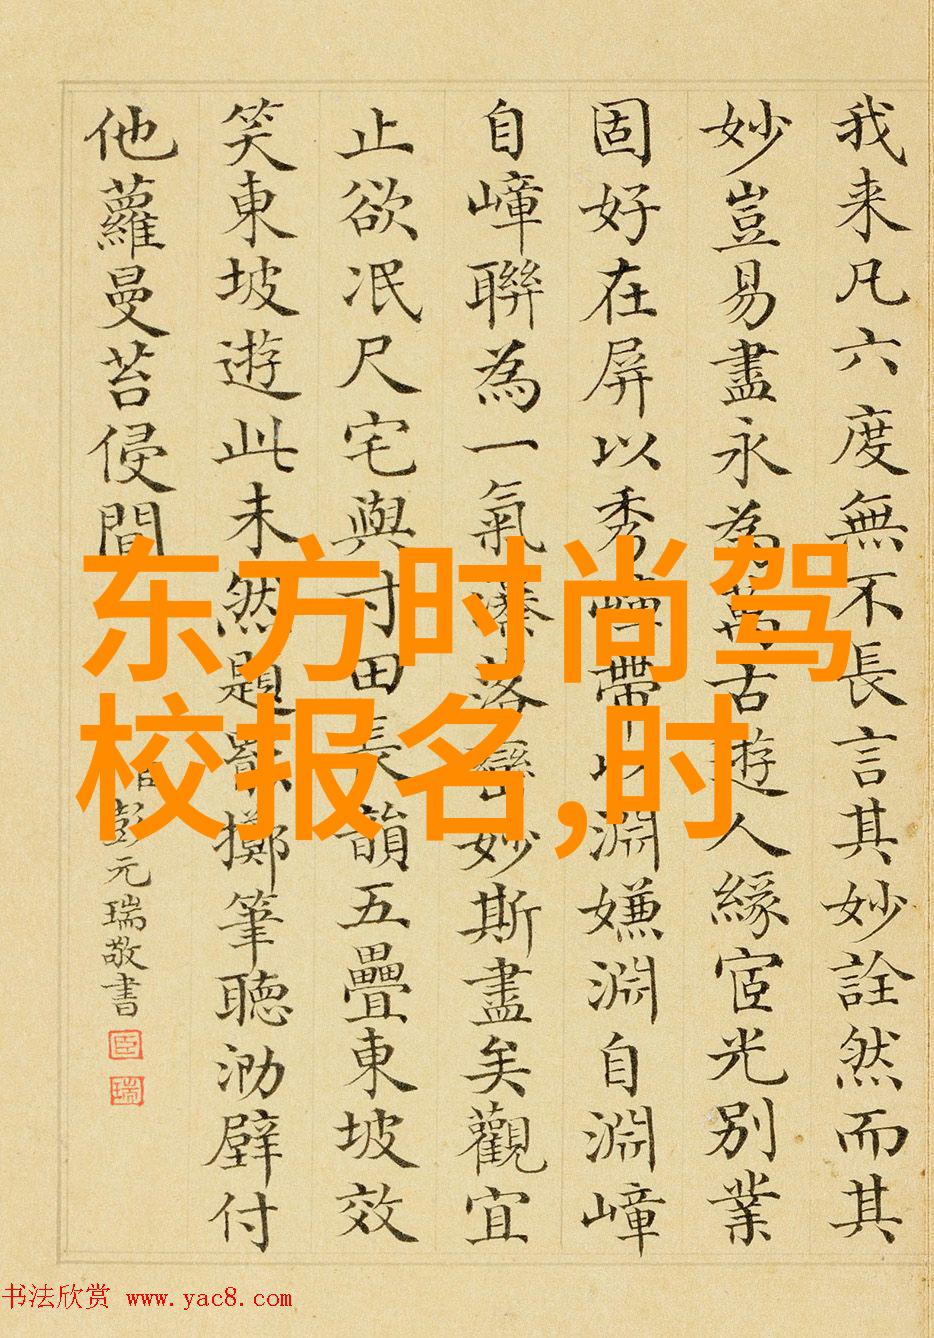 我来凡六度無不長言其妙詮然而其
妙豈易盡永為萬古遊人緣宦光別業
固好在屏以秀嶂帶以淵嫌淵自淵嶂
自嶂聯為一氣湊洛巒妙斯盡矣觀宜
止欲泯尺宅與寸田長韻五疊東坡效
笑東坡遊此未然題罷擲筆聽泐壁付
他蘿曼苔侵間
臣彭元瑞敬書
臣
瑞
东方时尚驾
校报名,时
书法欣赏 www.yac8.com